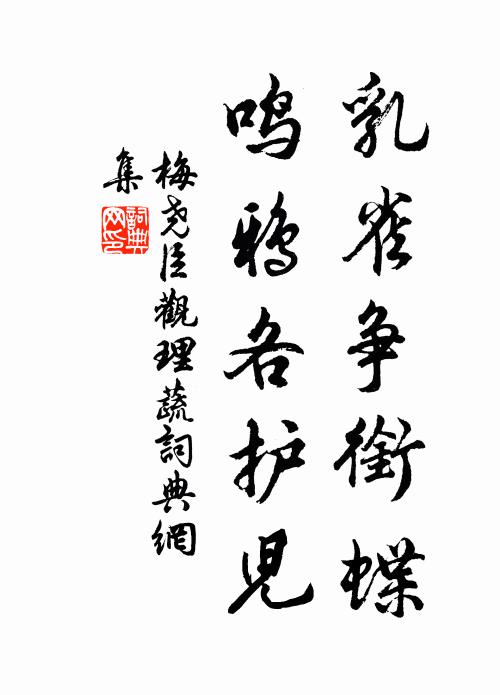 乳雀争銜蝶
鸣鸦各护児
梅尧臣觀理蔬詞典網
集
詞典
网印